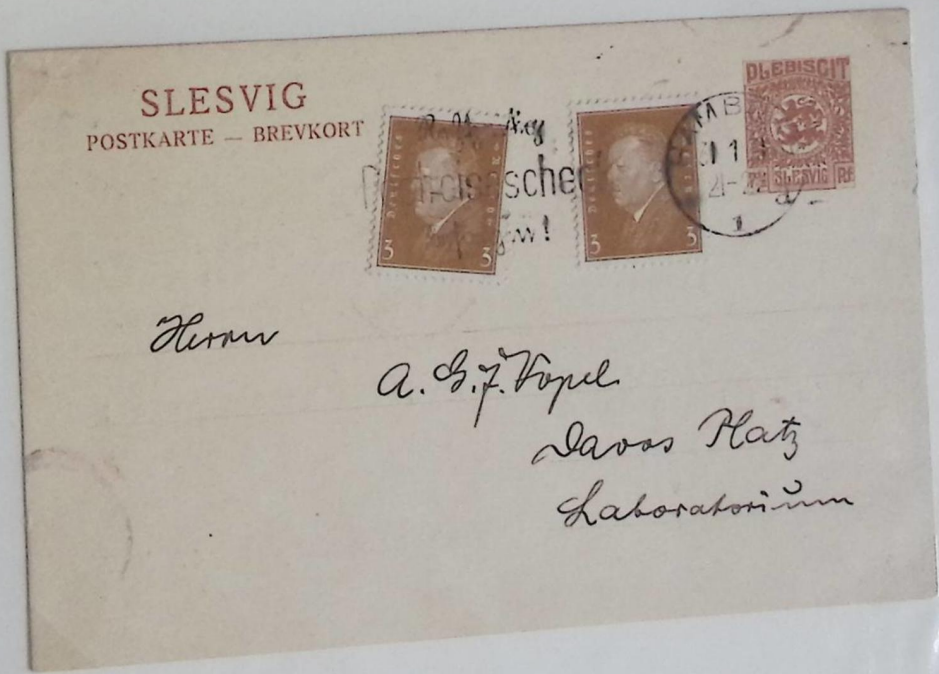 SLESVIG
POSTKARTE — BREVKORT
PLEBISCIT
SLESVIG Pf.
3 3
3 3
Herrn
A. G. J. Vogel
Davos Platz
Laboratorium